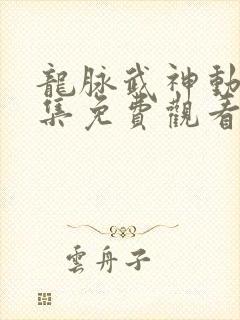 龍脉武神動
集免費觀看
雲舟子